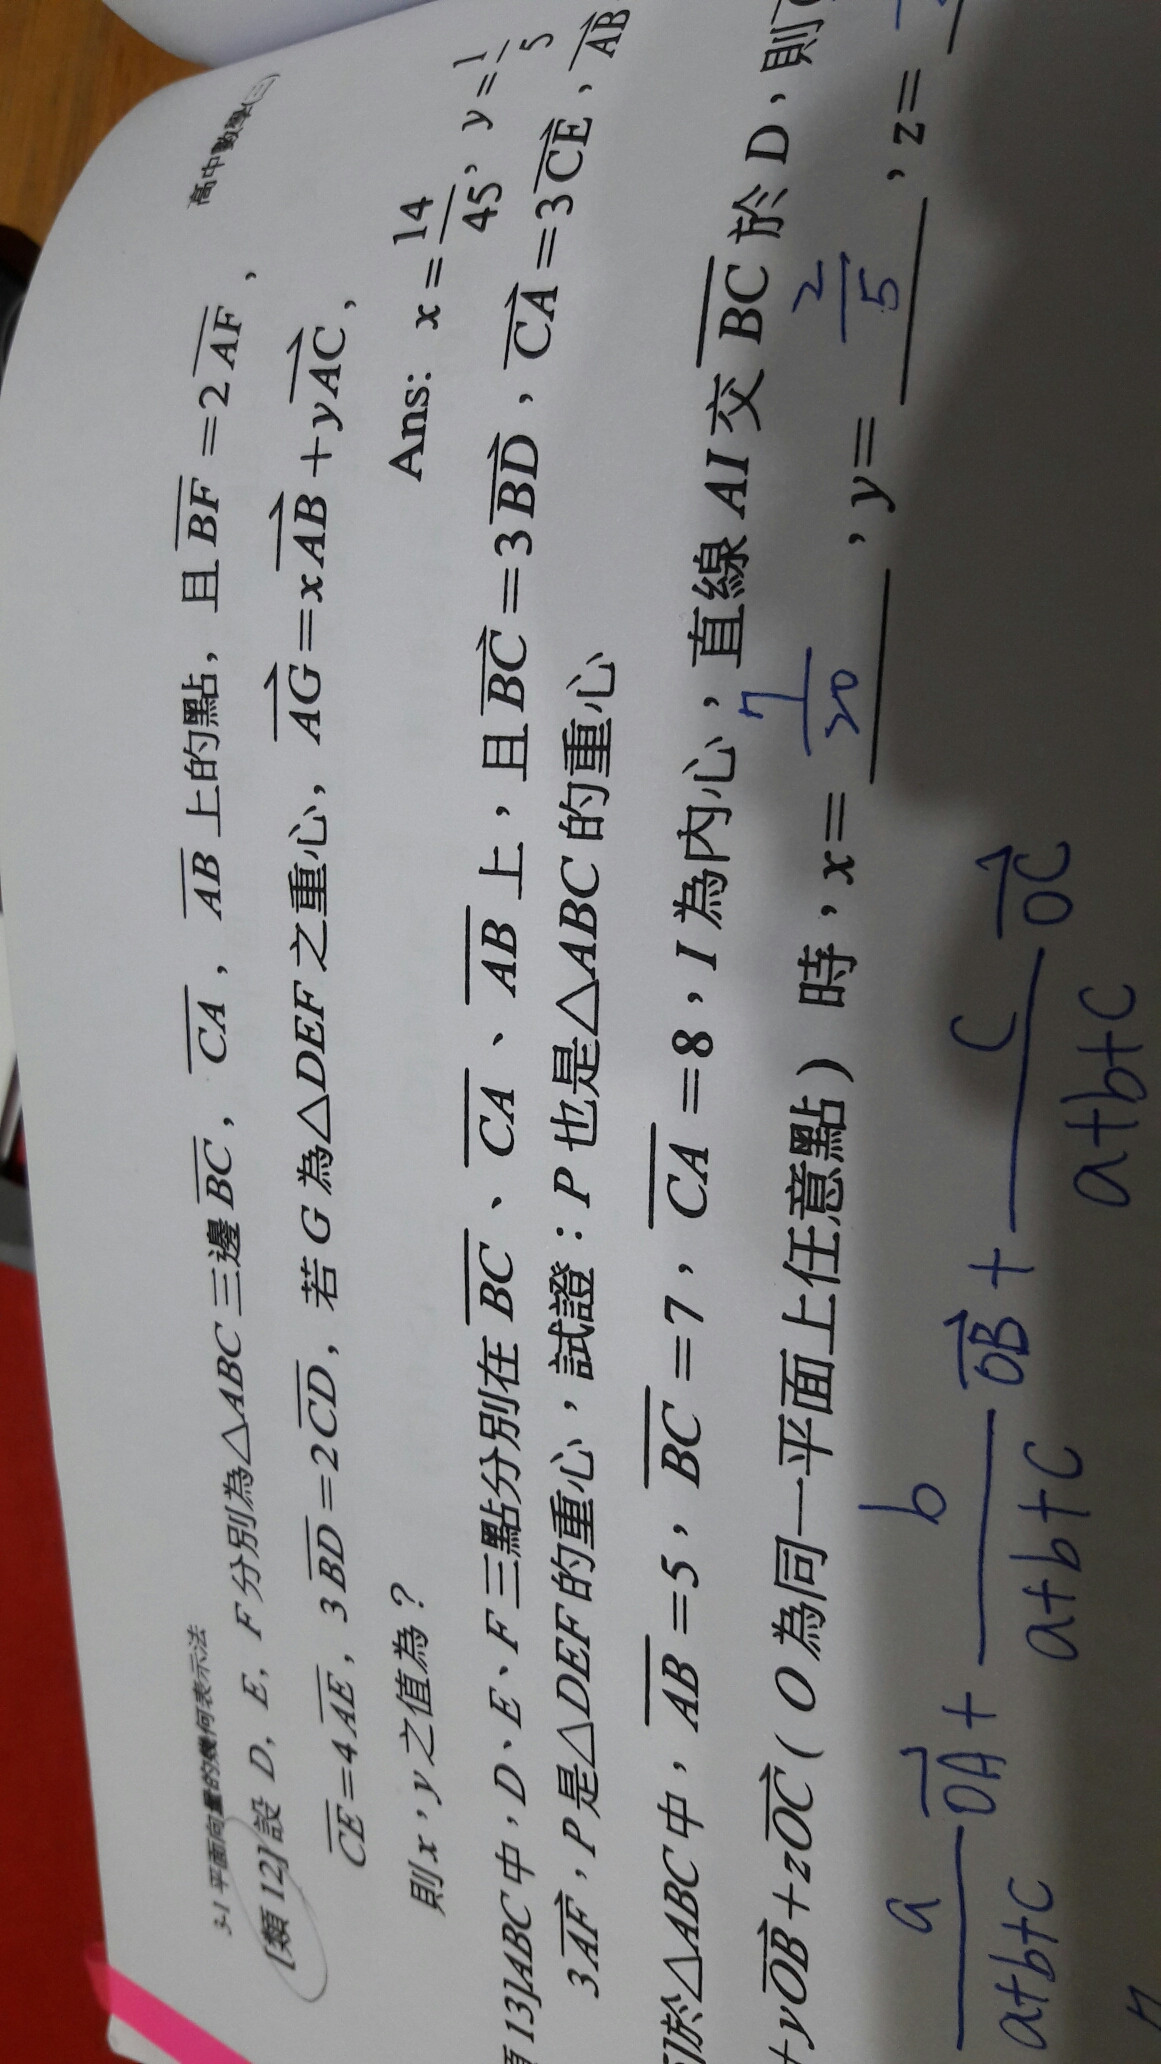 3-1 平面向量的幾何表示法
高中數學(三)
[類 12]設 D, E, F 分別為△ABC 三邊 BC, CA, AB 上的點, 且 BF =2 AF,
CE=4 AE, 3 BD=2 CD, 若 G 為△DEF 之重心, AG=xAB+yAC,
則x,y之值為?
Ans: x=14/45, y=1/5
13]ABC中,D、E、F三點分別在 BC、CA、AB 上,且BC=3BD,CA=3CE、AB
3AF,P是△DEF的重心,試證:P也是△ABC的重心
於△ABC中,AB=5,BC=7,CA=8,I為內心,直線AI交BC於D,則
+yOB+zOC(O為同一平面上任意點)時,x= 7/20 ,y= 2/5 ,z=
a/a+b+c OA + b/a+b+c OB + c/a+b+c OC